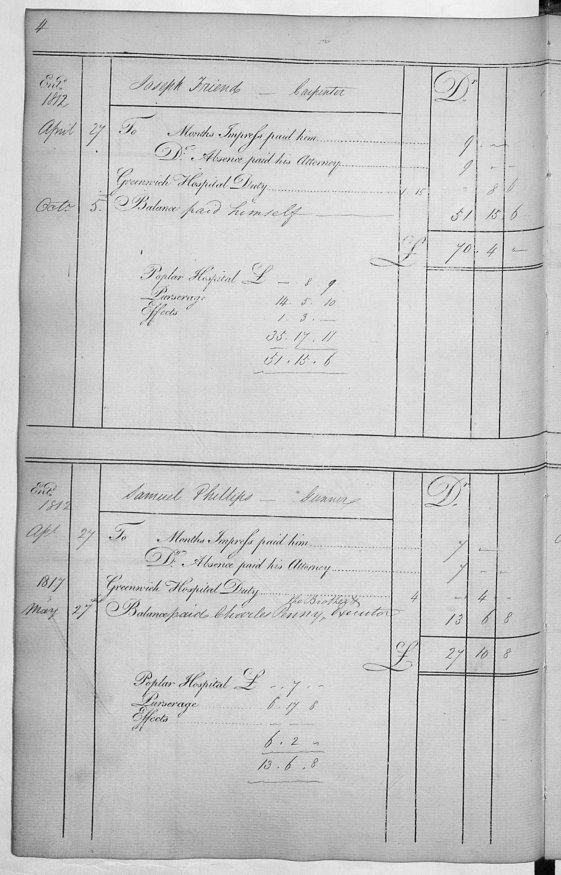 4
Joseph Friend — Carpenter
Dr
1812
April 27 To Months Impress paid him 9 . — —
Do. Absence paid his Attorney 9 . — —
Greenwich Hospital Duty 1 15 — 8 6
Octr. 5 Balance paid himself 51 15 . 6
£ 70 . 4 —
Poplar Hospital £ — . 8 . 9
Purserage 14 . 5 . 10
Effects 1 . 3 . —
35 . 17 . 11
51 . 15 . 6
Samuel Phillips — Gunner
Dr
1812
Apl. 27 To Months Impress paid him 7 . —
Do. Absence paid his Attorney 7 . — —
1817
Greenwich Hospital Duty 4 — 4 —
the Brother &
May 27 Balance paid Charles Penny, Executor 13 6 8
£ 27 10 8
Poplar Hospital £ — . 7 . —
Purserage 6 . 17 8
Effects — —
6 . 2 —
13 . 6 . 8